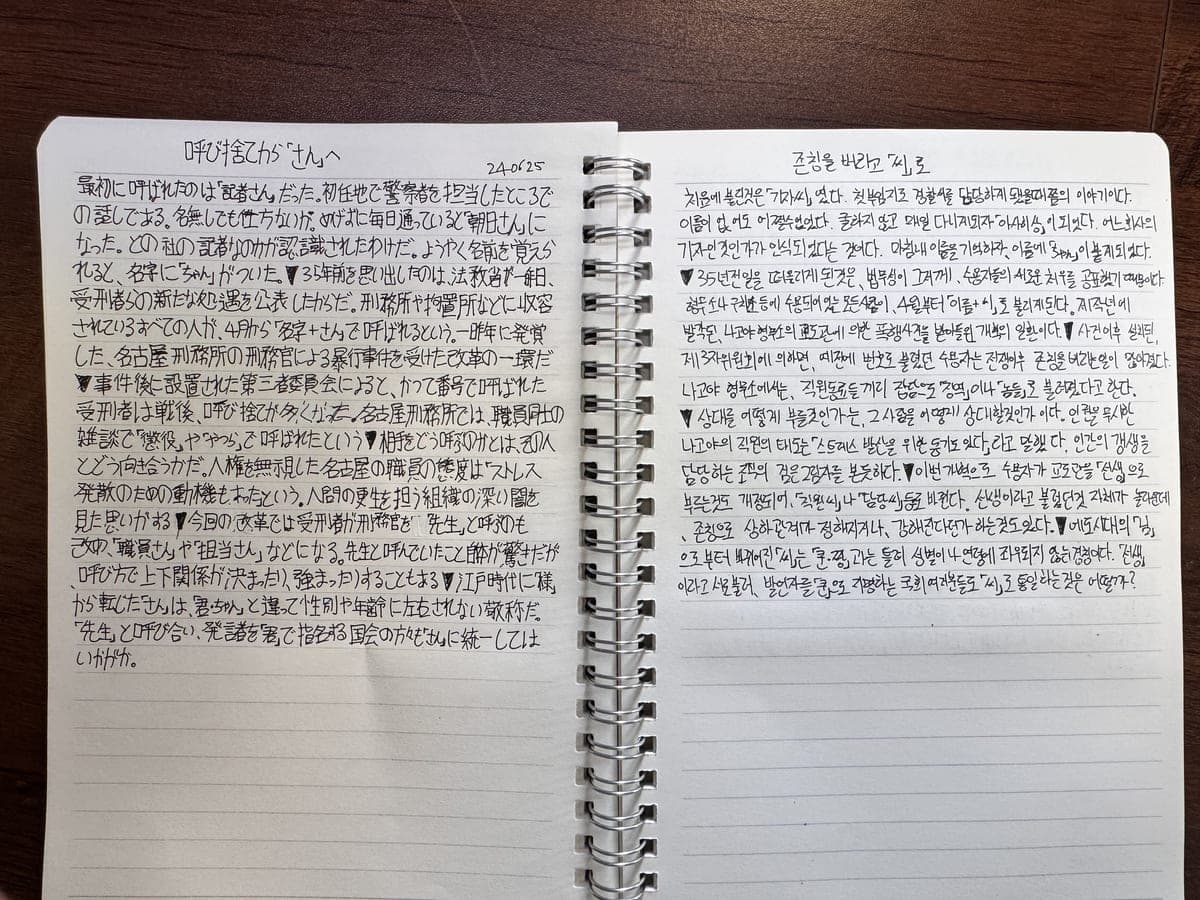 呼び捨てから「さん」へ
24.06.25
最初に呼ばれたのは「記者さん」だった。初任地で警察者を担当したところで
の話してある。名無しでも仕方ないが、めげずに毎日通っていると「朝日さん」に
なった。どの社の記者なのかが認識されたわけだ。ようやく名前を覚えら
れると、名字に「ちゃん」がついた。▼35年前を思い出したのは、法務省が一昨日、
受刑者らの新たな処遇を公表したからだ。刑務所や拘置所などに収容
されているすべての人が、4月から「名字+さん」で呼ばれるという。一昨年に発覚
した、名古屋刑務所の刑務官による暴行事件を受けた改革の一環だ
▼事件後に設置された第三者委員会によると、かつて番号で呼ばれた
受刑者は戦後、呼び捨てが多くなった。名古屋刑務所では、職員同士の
雑談で「懲役」や「やつら」で呼ばれたという▼相手をどう呼ぶのかとは、その人
とどう向き合うかだ。人権を無視した名古屋の職員の態度は「ストレス
発散のための動機もあった」という。人間の更生を担う組織の深い闇を
見た思いがする▼今回の改革では受刑者が刑務官を「先生」と呼ぶのも
改め、「職員さん」や「担当さん」などになる。先生と呼んでいたこと自体が驚きだが
、呼び方で上下関係が決まったり、強まったりすることもある▼江戸時代に「様」
から転じた「さん」は、君・ちゃんと違って性別や年齢に左右されない敬称だ。
「先生」と呼び合い、発言者を「君」で指名する国会の方々も「さん」に統一しては
いかがか。
존칭을 버리고 「씨」로
처음에 불린것은 「기자씨」였다. 첫 부임지로 경찰서를 담당하게 됐을때쯤의 이야기이다.
이름이 없어도 어쩔수없었다. 굴하지 않고 매일 다니게되자 「아사히상」이 되었다. 어느회사의
기자인것인가가 인식되었다는 것이다. 마침내 이름을 기억하자, 이름에 「ちゃん」이 붙게되었다.
▼35년전일을 떠올리게 된것은, 법무성이 그저께, 수용자들의 새로운 처우를 공표했기 때문이다.
형무소나 구치소 등에 수용되어있는 모든사람이, 4월부터 「이름+씨」로 불리게된다. 재작년에
발각된, 나고야 형무소의 교도관에 의한 폭행사건을 받아들인 개혁의 일환이다▼사건이후 설치된,
제3자위원회에 의하면, 예전에 번호로 불렸던 수용자는 전쟁이후 존칭을 버리는일이 많아졌다.
나고야 형무소에서는, 직원동료들 끼리 잡담으로 「징역」이나 「놈들」로 불려졌다고 한다.
▼상대를 어떻게 부를것인가는, 그 사람을 어떻게 상대할것인가 이다. 인권을 무시한
나고야의 직원의 태도는 「스트레스 발산을 위한 동기도 있다」라고 말했다. 인간의 갱생을
담당하는 조직의 검은 그림자를 본듯하다▼이번 개혁으로 수용자가 교도관을 「선생」으로
부르는것도 개정되어, 「직원씨」나 「담당씨」등으로 바뀐다. 선생이라고 불렀던것 자체가 놀라운데
, 존칭으로 상하관계가 정해지거나, 강해진다던가 하는것도 있다.▼에도시대의 「님」
으로부터 바뀌어진 「씨」는 「군・짱」과는 달리 성별이나 연령에 좌우되지 않는 경칭이다. 「선생」
이라고 서로 불러, 발언자를 「군」으로 지명하는 국회 여러분들도 「씨」로 통일하는것은 어떨까?